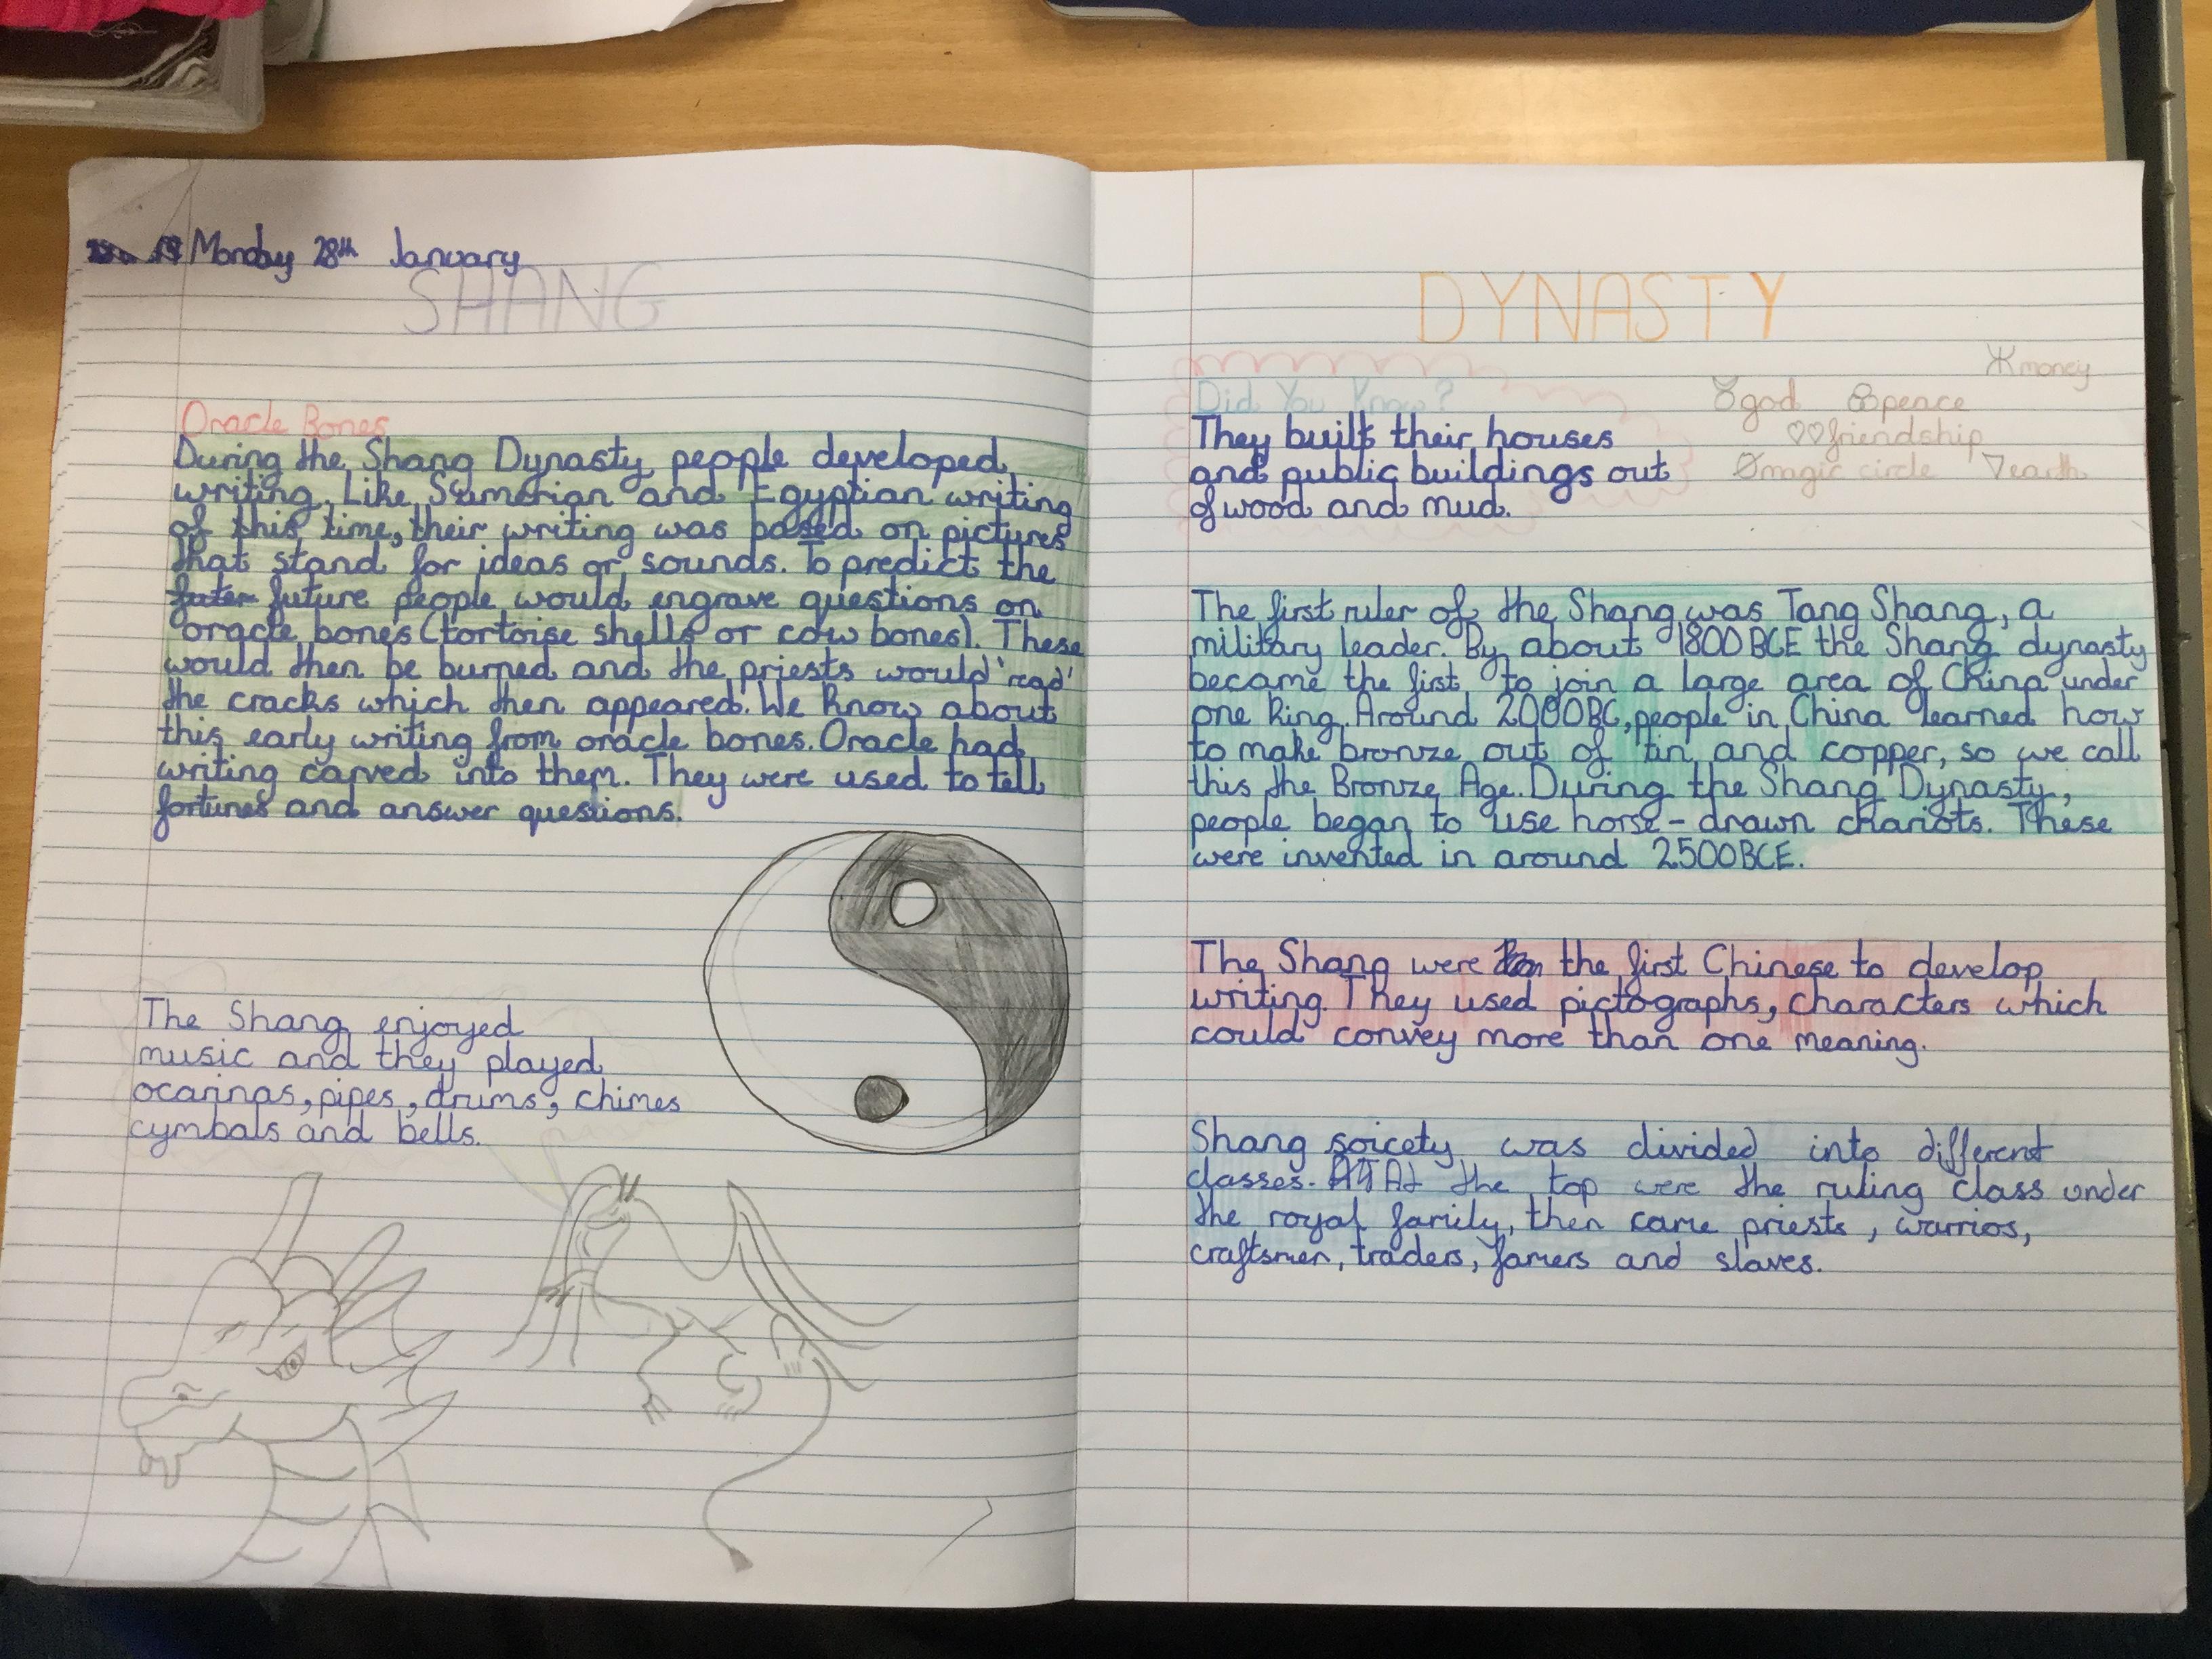 Monday 28th January
SHANG
Oracle Bones
During the Shang Dynasty people developed
writing. Like Sumerian and Egyptian writing
of this time, their writing was based on pictures
that stand for ideas or sounds. To predict the
future people would engrave questions on
oracle bones (tortoise shells or cow bones). These
would then be burned and the priests would 'read'
the cracks which then appeared. We know about
this early writing from oracle bones. Oracle had
writing carved into them. They were used to tell
fortunes and answer questions.
The Shang enjoyed
music and they played
ocarinas, pipes, drums, chimes
cymbals and bells.
DYNASTY
Did You Know?
They built their houses
and public buildings out
of wood and mud.
money
god peace
friendship
magic circle earth
The first ruler of the Shang was Tang Shang, a
military leader. By about 1800 BCE the Shang dynasty
became the first to join a large area of China under
one king. Around 2000BC, people in China learned how
to make bronze out of tin and copper, so we call
this the Bronze Age. During the Shang Dynasty,
people began to use horse-drawn chariots. These
were invented in around 2500BCE.
The Shang were the first Chinese to develop
writing. They used pictographs, characters which
could convey more than one meaning.
Shang soicety was divided into different
classes. At the top were the ruling class under
the royal family, then came priests, warrios,
craftsmen, traders, famers and slaves.